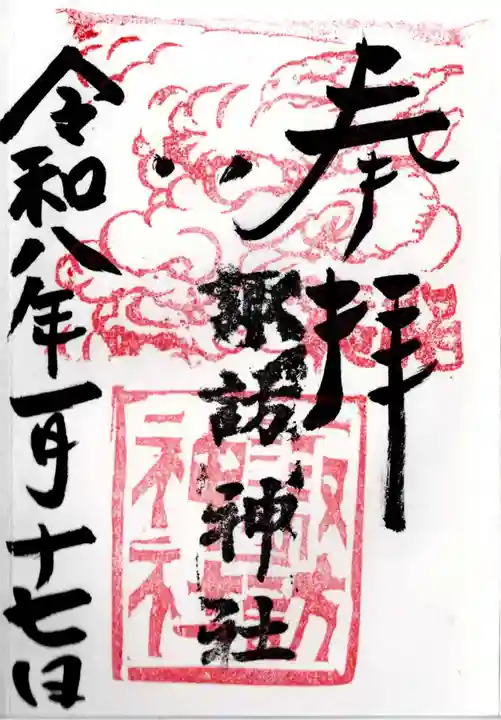 奉拝
諏訪神社
諏訪神社
令和八年一月十七日